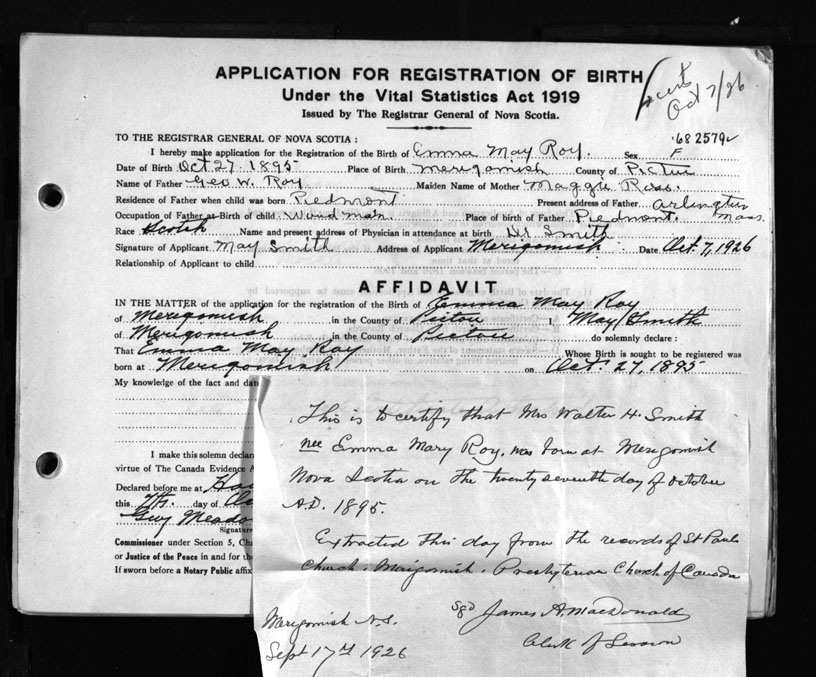 APPLICATION FOR REGISTRATION OF BIRTH
Under the Vital Statistics Act 1919
Issued by The Registrar General of Nova Scotia.
Oct 7/26
TO THE REGISTRAR GENERAL OF NOVA SCOTIA:
I hereby make application for the Registration of the Birth of Emma May Roy. Sex F
Date of Birth Oct 27 1895 Place of Birth Merigomish County of Pictou
Name of Father Geo W. Roy Maiden Name of Mother Maggie Ross.
Residence of Father when child was born Piedmont Present address of Father Arlington
Occupation of Father at Birth of child Place of birth of Father Piedmont. Mass.
Race Scotch Name and present address of Physician in attendance at birth Dr Smith
Signature of Applicant May Smith Address of Applicant Merigomish Date Oct. 7, 1926
Relationship of Applicant to child
AFFIDAVIT
IN THE MATTER of the application for the registration of the Birth of Emma May Roy
of Merigomish in the County of Pictou I, May Smith
of Merigomish in the County of Pictou do solemnly declare:
That Emma May Roy Whose Birth is sought to be registered was
born at Merigomish on Oct. 27, 1895
My knowledge of the fact and date
I make this solemn declar
virtue of The Canada Evidence A
Declared before me at
this 7th. day of
Guy Meado
Signature
Commissioner under Section 5, Ch
or Justice of the Peace in and for th
If sworn before a Notary Public affix
This is to certify that Mrs Walter H. Smith
nee Emma Mary Roy, was born at Merigomish
Nova Scotia on the twenty seventh day of October
A.D. 1895.
Extracted this day from the records of St Pauls
Church, Merigomish, Presbyterian Church of Canada
Sgd James A. MacDonald
Clerk of Session
Merigomish N.S.
Sept 17th 1926